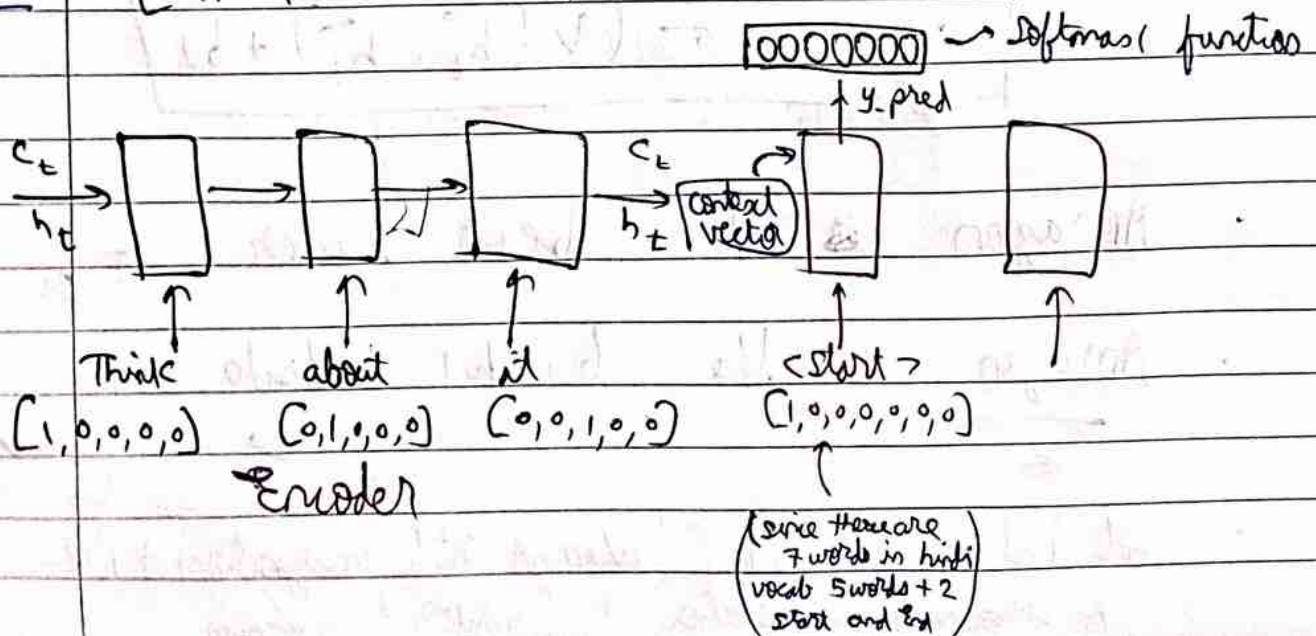 0000000 → Softmax function
y_pred
C_t C_t
h_t h_t
context
vector
Think about it <start>
[1,0,0,0,0] [0,1,0,0,0] [0,0,1,0,0] [1,0,0,0,0,0,0]
Encoder
(since there are
7 words in hindi
vocab 5 words + 2
start and End